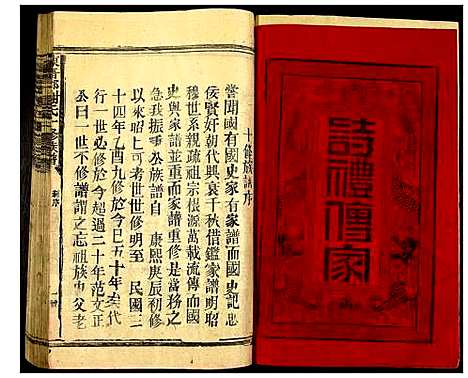 詩禮傳家
十修族譜序
嘗聞國有國史家有家譜而國史記忠
佞賢奸朝代興衰千秋借鑑家譜明昭
穆世系親疏祖宗根源萬載流傳而國
史與家譜並重而家譜重修是當務之
急我振 公族譜自 康熙庚辰初修
以來昭乀可考世世修明至 民國三
十四年乙酉九修於今已五十年矣代
行一世必修於今超過二十年范文正
公曰一世不修譜謂之忘祖族中父老
譜序